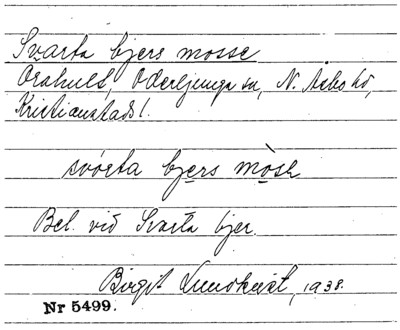 Svarta bjers mosse
Orahult, Oderljunga sn, N. Åsbo hd,
Kristianstads l.
svarta bjers mòsh
Bel. vid Svarta bjer.
Birgit Lundkvist, 1938.
Nr 5499.